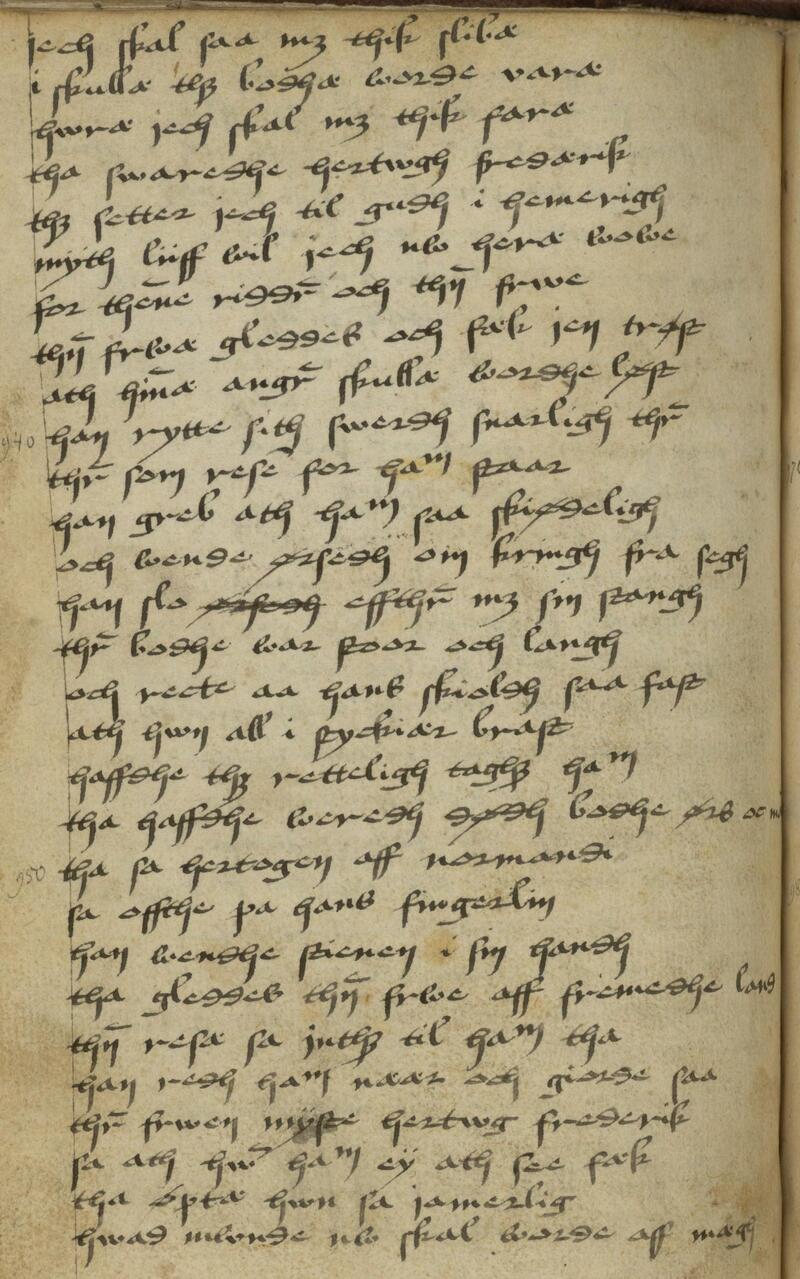 jech skal saa mz thik slibæ
i skullæ thz bodhæ worde varæ
hwræ jech skal mz thik faræ
tha swaredhe hertwgh frederik
thz setter jech til gudh i hemerigh
myth liiff wil jech nw heræ wowe
for thēne riddr̄ och thn̄ frwe
thn̄ frwæ gleddes och fæk jen trøst
ath hīnæ angr̄ skullæ wordhe løst
940 han rytte sith swerdh snarligh thr̄
thr̄ som resē for ham staar
han greb ath ham saa skiødeligh
och wende ørsedh om kringh fra segh
han slo ørsedh effthr̄ mz sin stangh
thr̄ bodhe war stoor och langh
och recte aa hans skioldh saa fast
ath hwn all i styckiær brast
haffdhe thz retteligh taghz ham
tha haffdhe weredh dødh bodhe ørs oc
950 tha sa hertogen aff normandi
sa offthe pa hans fingerlin
han wendhe stienen i sin handh
tha gleddes thn̄ frwe aff fremedhe land
thn̄ resæ sa inthz til ham tha
han redh ham næær och giorde saa
thr̄ frwen myste hertwg frederik
sa ath hw̄ ham ey ath see fæk
tha øptæ hwn sa jamerlig
hwad mwnde nw skal worde aff mægh